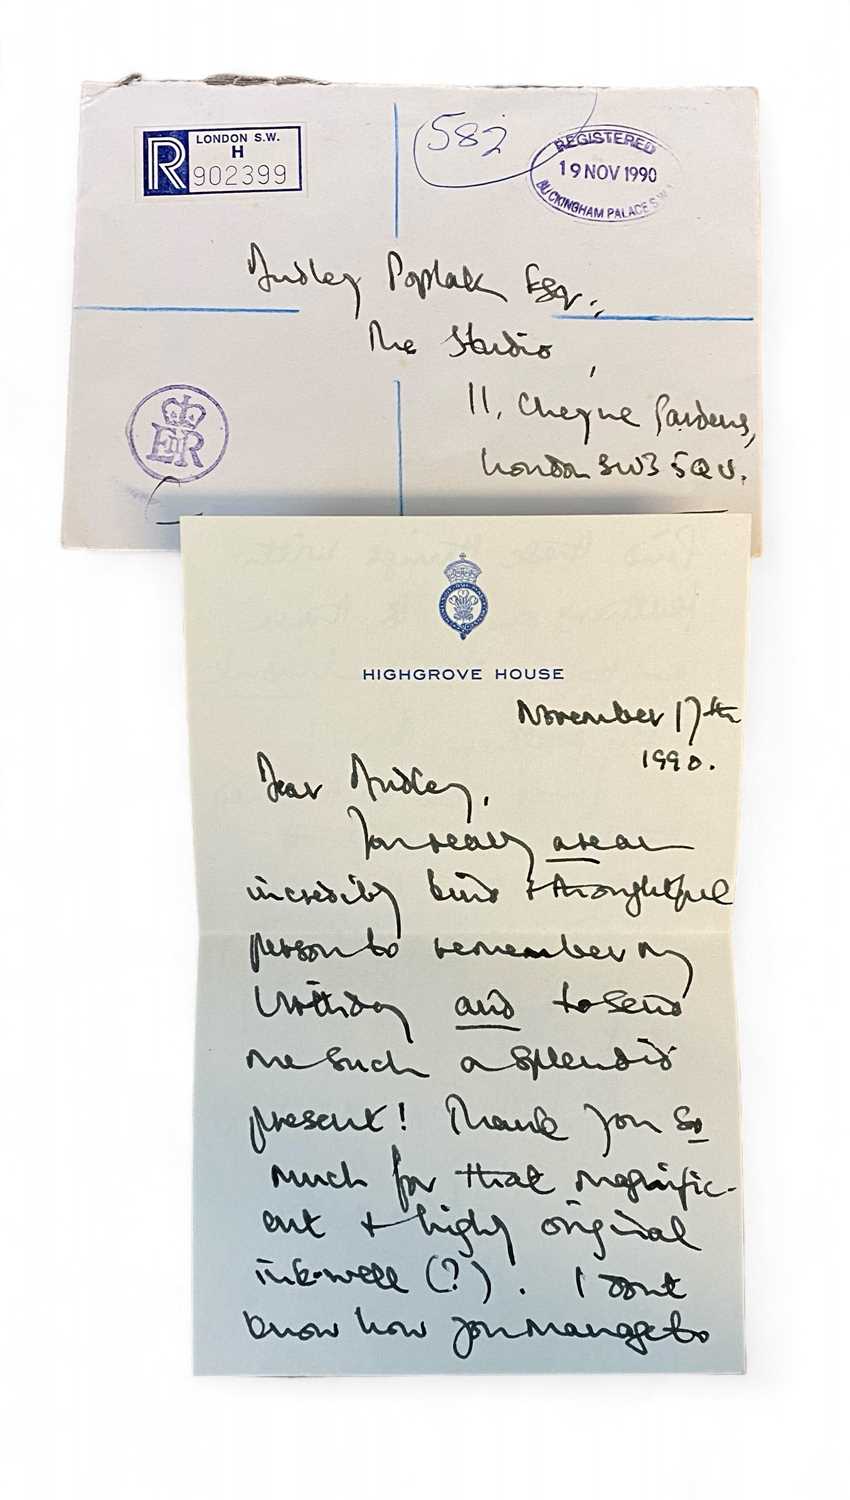 R
LONDON S.W.
H
902399
582
REGISTERED
19 NOV 1990
BUCKINGHAM PALACE S.W.1
Dudley Poplak Esq.,
The Studio,
11, Cheyne Gardens,
London SW3 5QU.
EIIR
HIGHGROVE HOUSE
November 17th
1990.
Dear Dudley,
You really are an
incredibly kind + thoughtful
person to remember my
birthday and to send
me such a splendid
present! Thank you so
much for that magnific-
ent + highly original
ink-well (?). I don't
know how you manage to